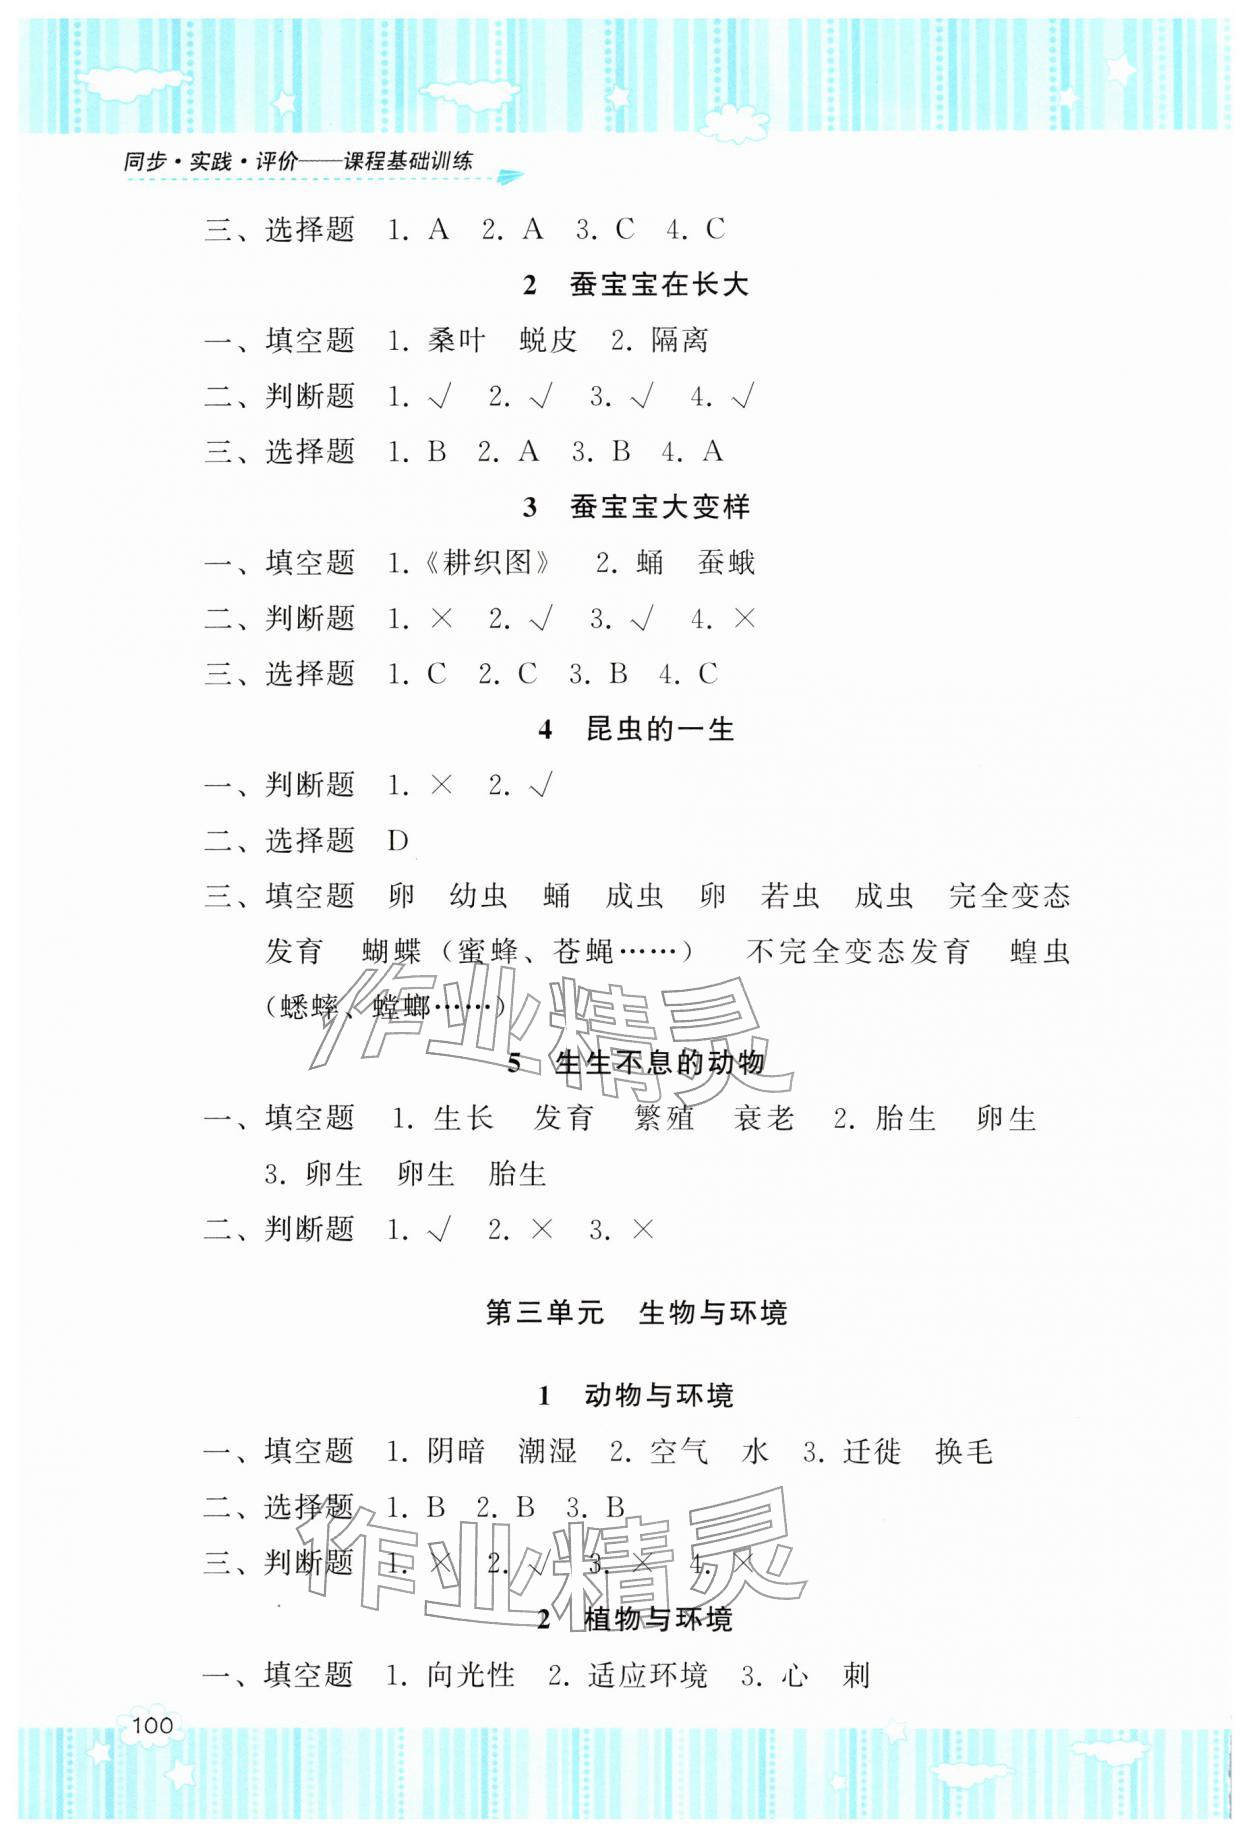 同步·实践·评价——课程基础训练
三、选择题 1. A 2. A 3. C 4. C
2 蚕宝宝在长大
一、填空题 1. 桑叶 蜕皮 2. 隔离
二、判断题 1. √ 2. √ 3. √ 4. √
三、选择题 1. B 2. A 3. B 4. A
3 蚕宝宝大变样
一、填空题 1.《耕织图》 2. 蛹 蚕蛾
二、判断题 1. × 2. √ 3. √ 4. ×
三、选择题 1. C 2. C 3. B 4. C
4 昆虫的一生
一、判断题 1. × 2. √
二、选择题 D
三、填空题 卵 幼虫 蛹 成虫 卵 若虫 成虫 完全变态
发育 蝴蝶（蜜蜂、苍蝇……） 不完全变态发育 蝗虫
（蟋蟀、螳螂……）
作业精灵
5 生生不息的动物
一、填空题 1. 生长 发育 繁殖 衰老 2. 胎生 卵生
3. 卵生 卵生 胎生
二、判断题 1. √ 2. × 3. ×
第三单元 生物与环境
1 动物与环境
一、填空题 1. 阴暗 潮湿 2. 空气 水 3. 迁徙 换毛
二、选择题 1. B 2. B 3. B
三、判断题 1. × 2. √ 3. × 4. ×
作业精灵
2 植物与环境
一、填空题 1. 向光性 2. 适应环境 3. 心 刺
100